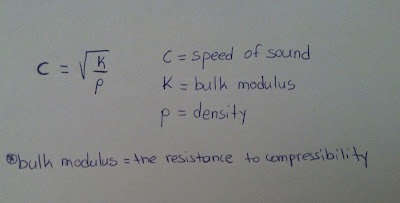 C = √K/ρ
C = speed of sound
K = bulk modulus
ρ = density
*bulk modulus = the resistance to compressibility